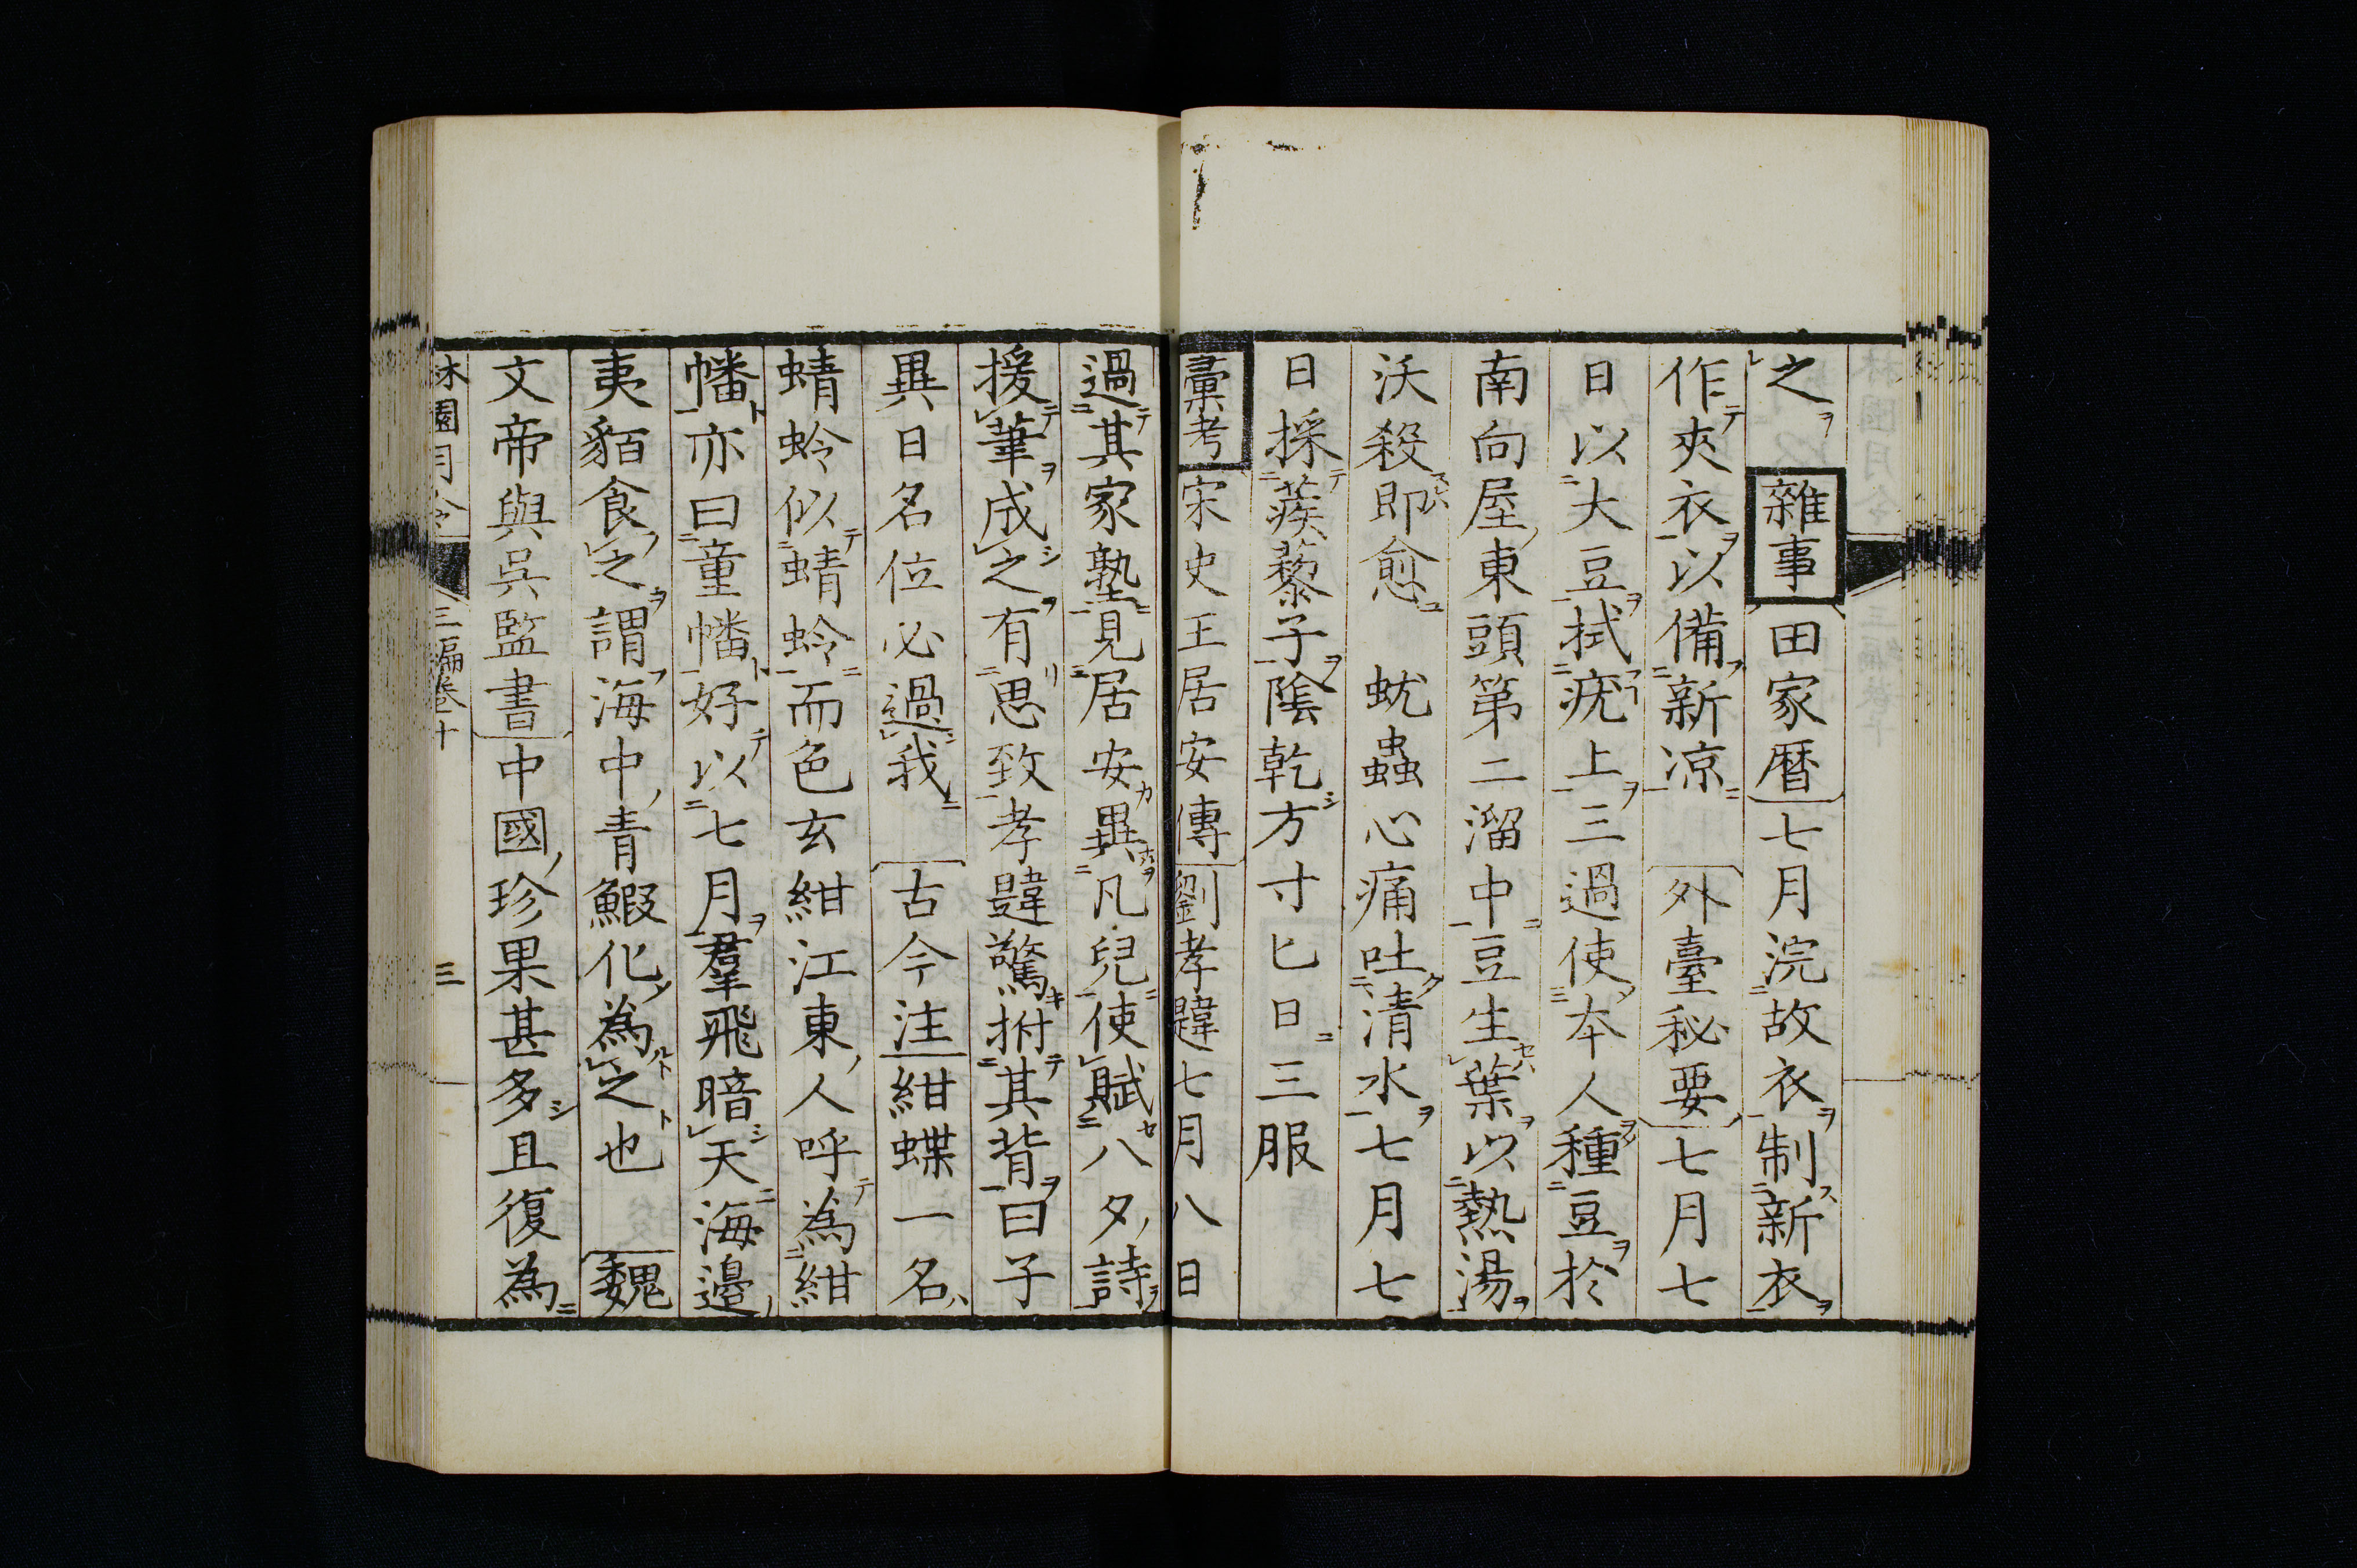 之 雜事 田家暦 七月浣故衣制新衣
作夾衣以備新凉 外臺秘要 七月七
日以大豆拭疣上三過使本人種豆於
南向屋東頭第二溜中豆生葉以熱湯
沃殺即愈 蚘蟲心痛吐清水七月七
日採蒺藜子陰乾方寸匕日三服
彙考 宋史王居安傳 劉孝韙七月八日
過其家塾見居安異凡兒使賦八夕詩
援筆成之有思致孝韙驚拊其背曰子
異日名位必過我 古今注 紺蝶一名
蜻蛉似蜻蛉而色玄紺江東人呼為紺
幡亦曰童幡好以七月羣飛暗天海邊
夷貊食之謂海中青鰕化為之也 魏
文帝與吳監書 中國珍果甚多且復為
林園月令 三編卷十 三